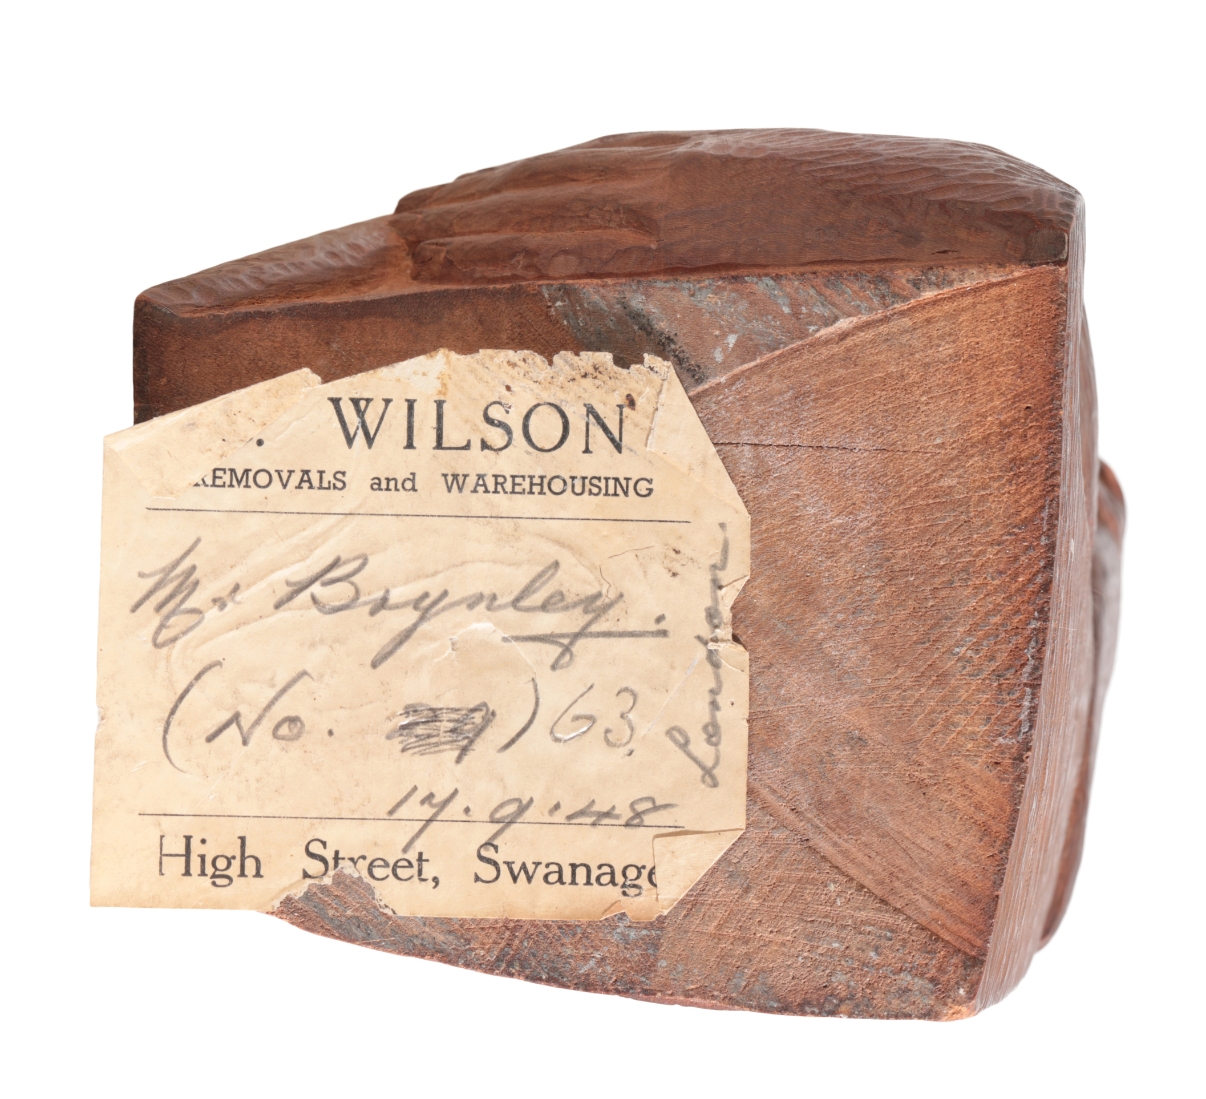 . WILSON
REMOVALS and WAREHOUSING
Mr Boynley.
(No. ) 63
London
17.9.48
High Street, Swanage